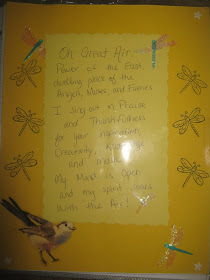 Oh Great Air
Power of the East
dwelling place of the
Angels, Muses and Fairies
I sing out in Praise
and Thankfulness
for your Inspiration,
Creativity, Knowledge
and
My Mind is Open
and my spirit soars
With the Air!